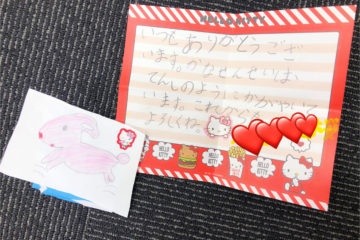 HELLO KITTY
いつもありがとうござ
います。かなせんせいは、
てんしのようにかがやいて
います。これからも
よろしくね。
HELLO KITTY
HELLO KITTY
HELLO KITTY